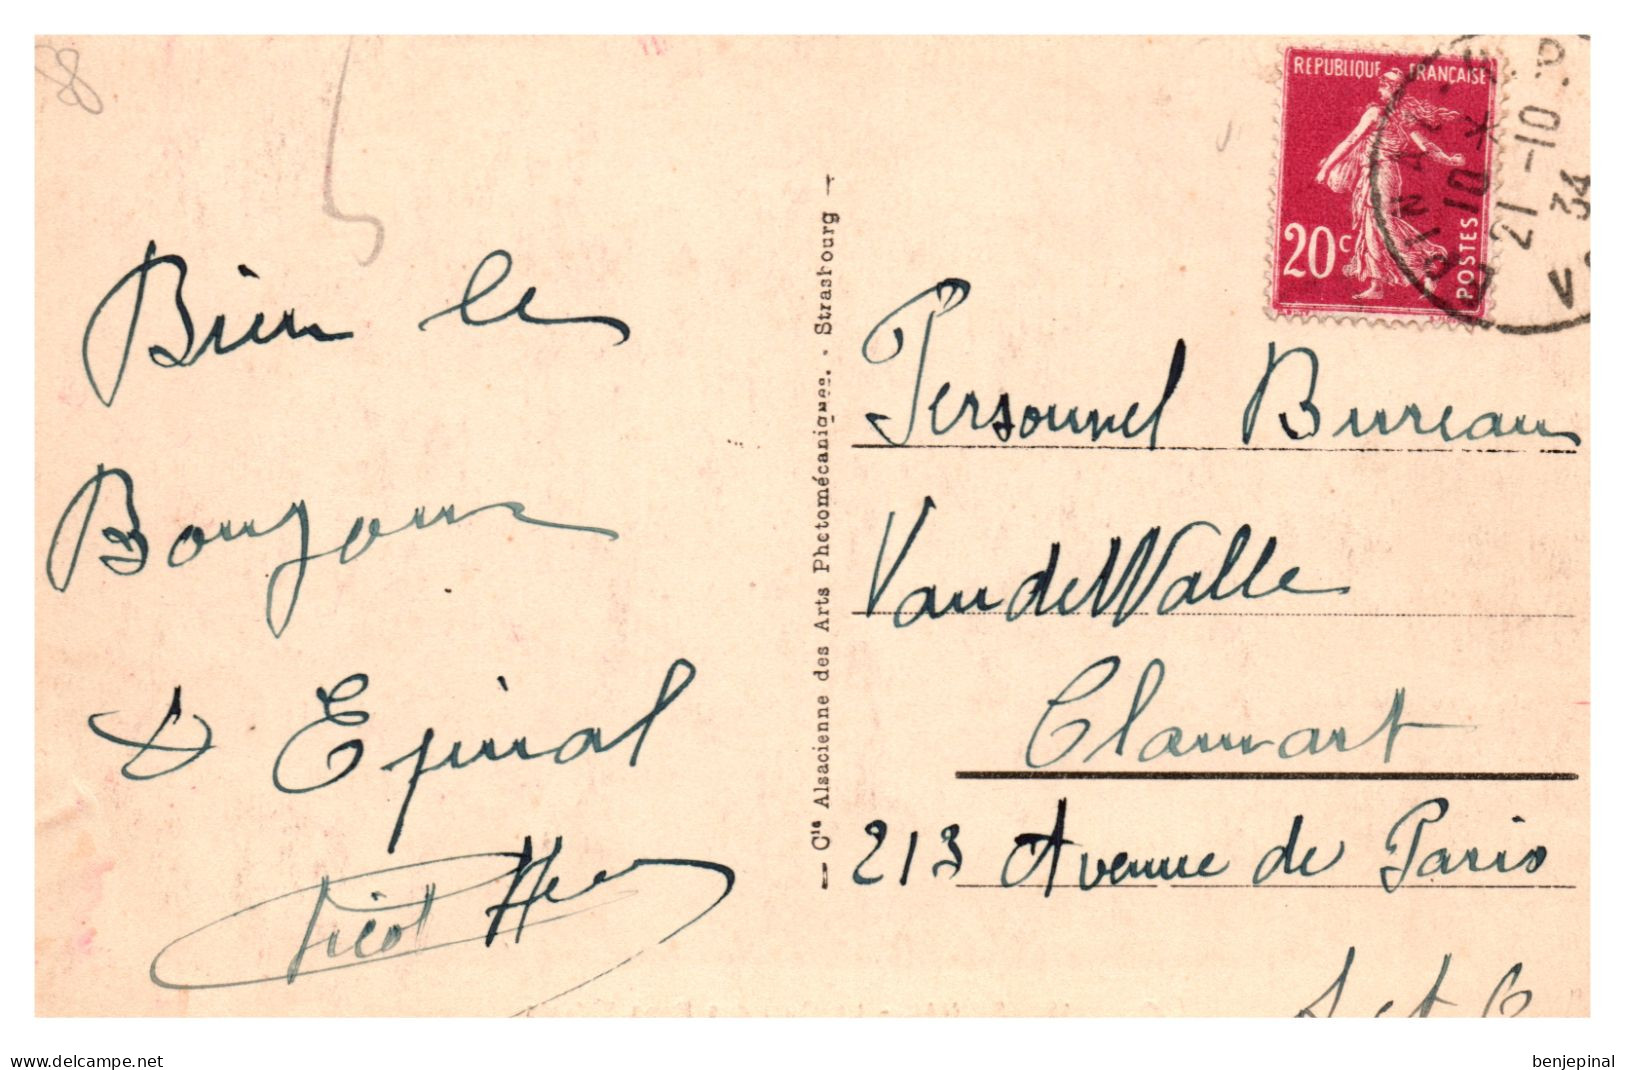 88
REPUBLIQUE FRANÇAISE
20c
POSTES
EPINAL
10
21-10
34
Bien le
Bonjour
d'Epinal
Personnel Bureau
VandeWalle
Clamart
213 Avenue de Paris
S et O
— Cie Alsacienne des Arts Photomécaniques. - Strasbourg —
delcampe.net
benjepinal